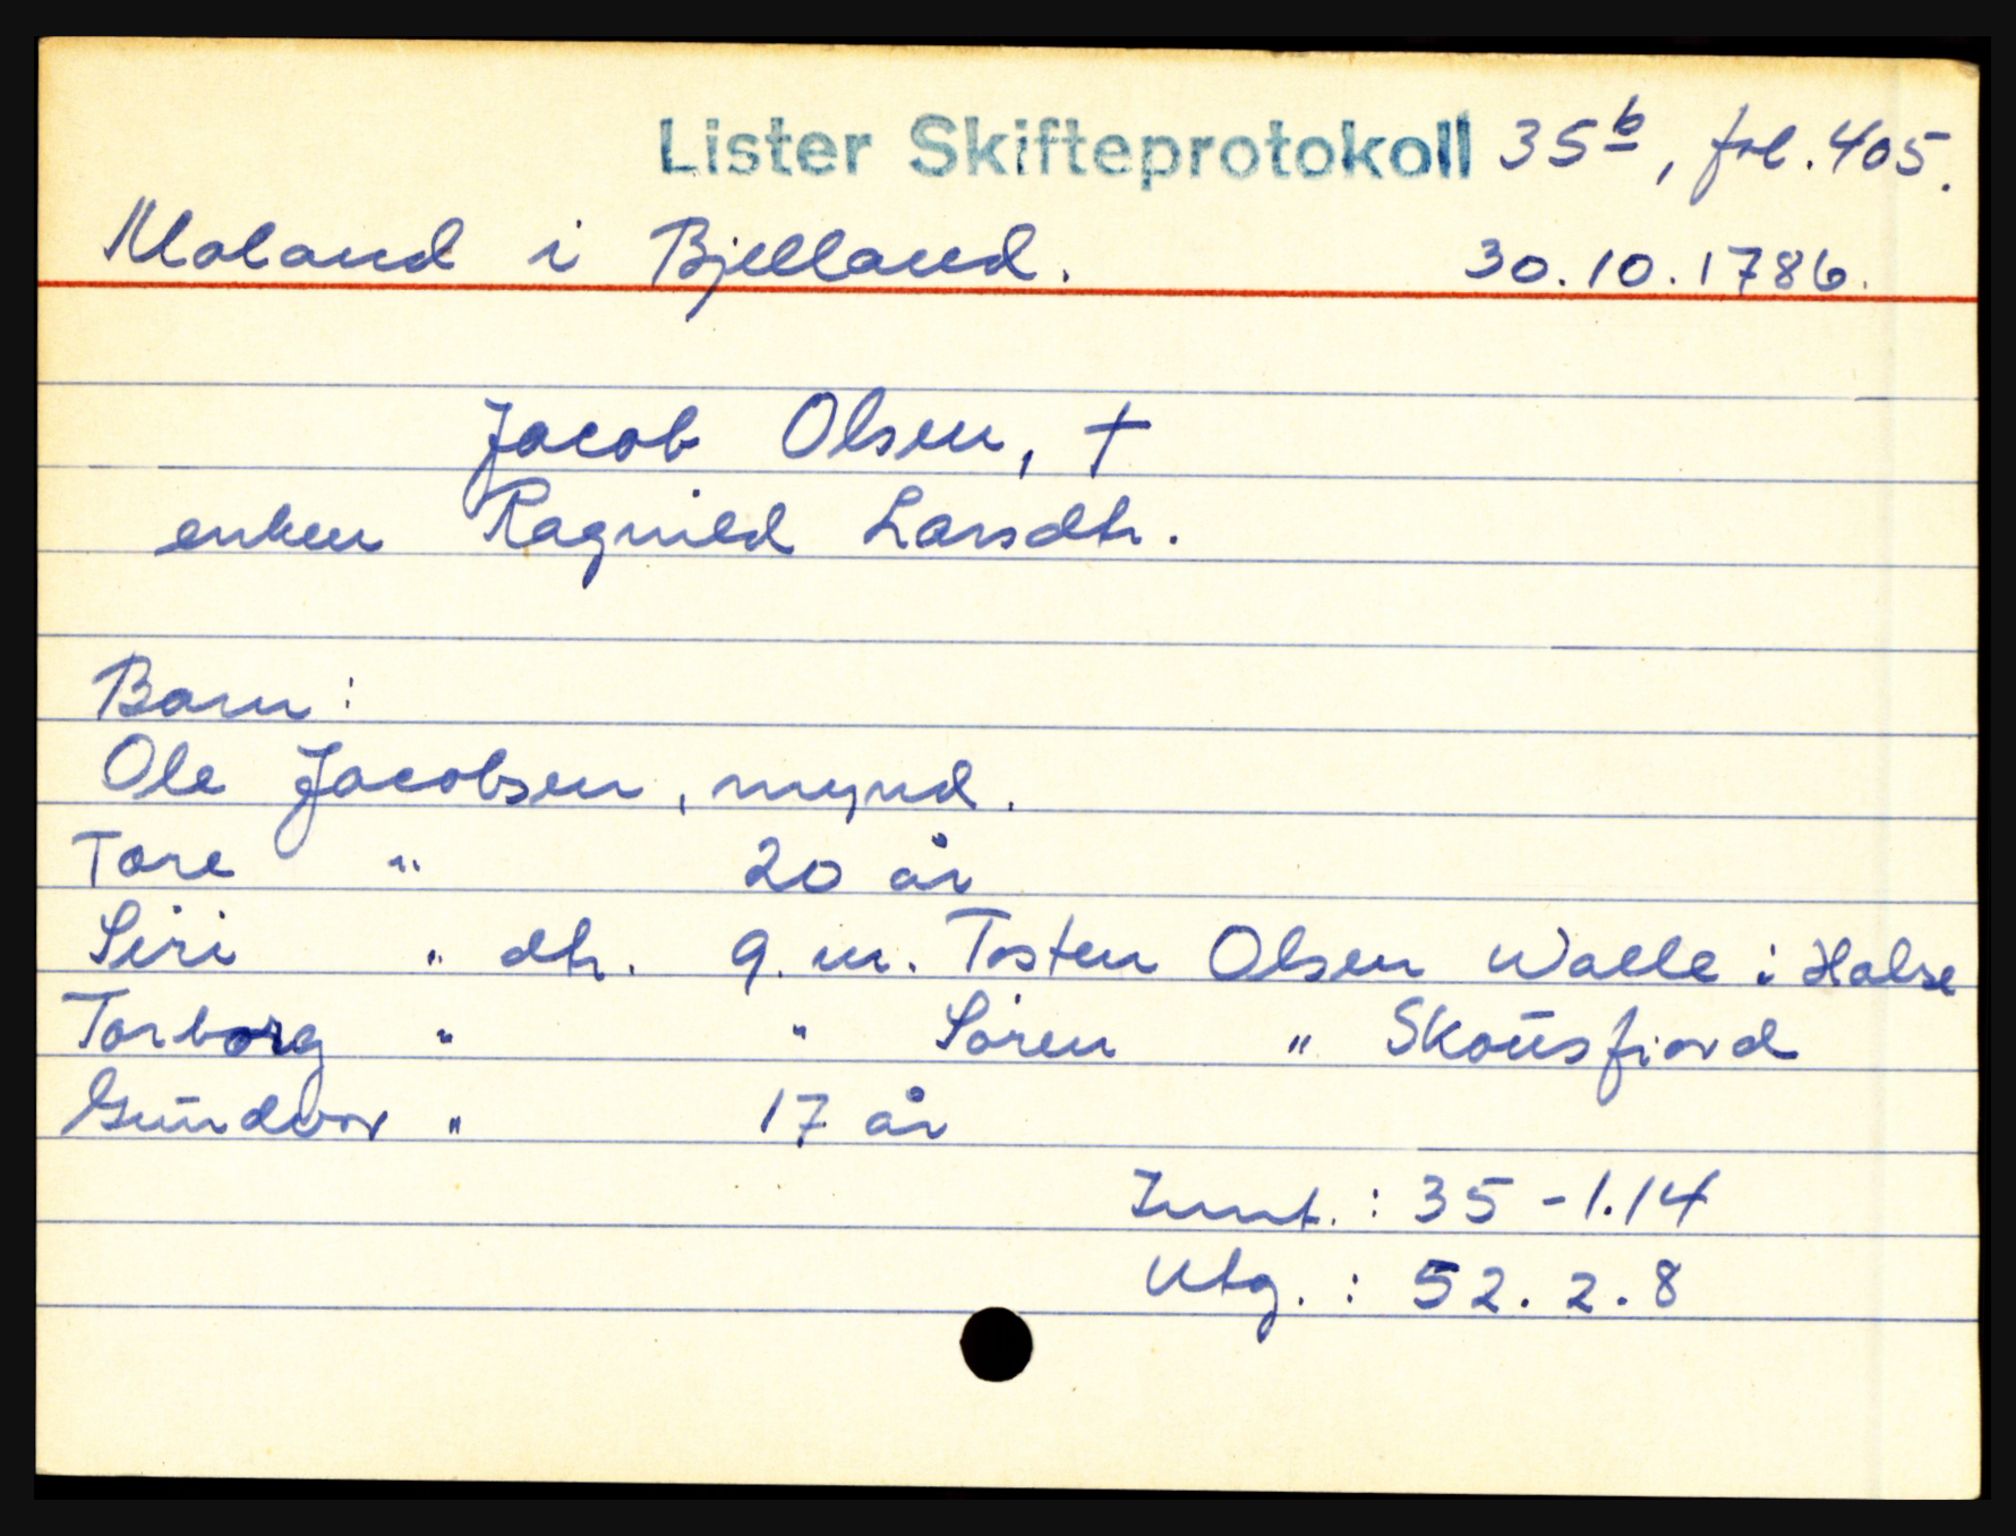 Lister Skifteprotokoll 35b, fol. 405.
Moland i Bjelland. 30.10.1786.
Jacob Olsen, †
enken Ragnild Larsdtr.
Barn:
Ole Jacobsen, mynd.
Tore " 20 år
Siri " dtr. g.m. Tosten Olsen Walle i Halse
Torborg " " Sören " Skoüsfiord
Gündvor " 17 år
Innt.: 35-1.14
Utg.: 52.2.8